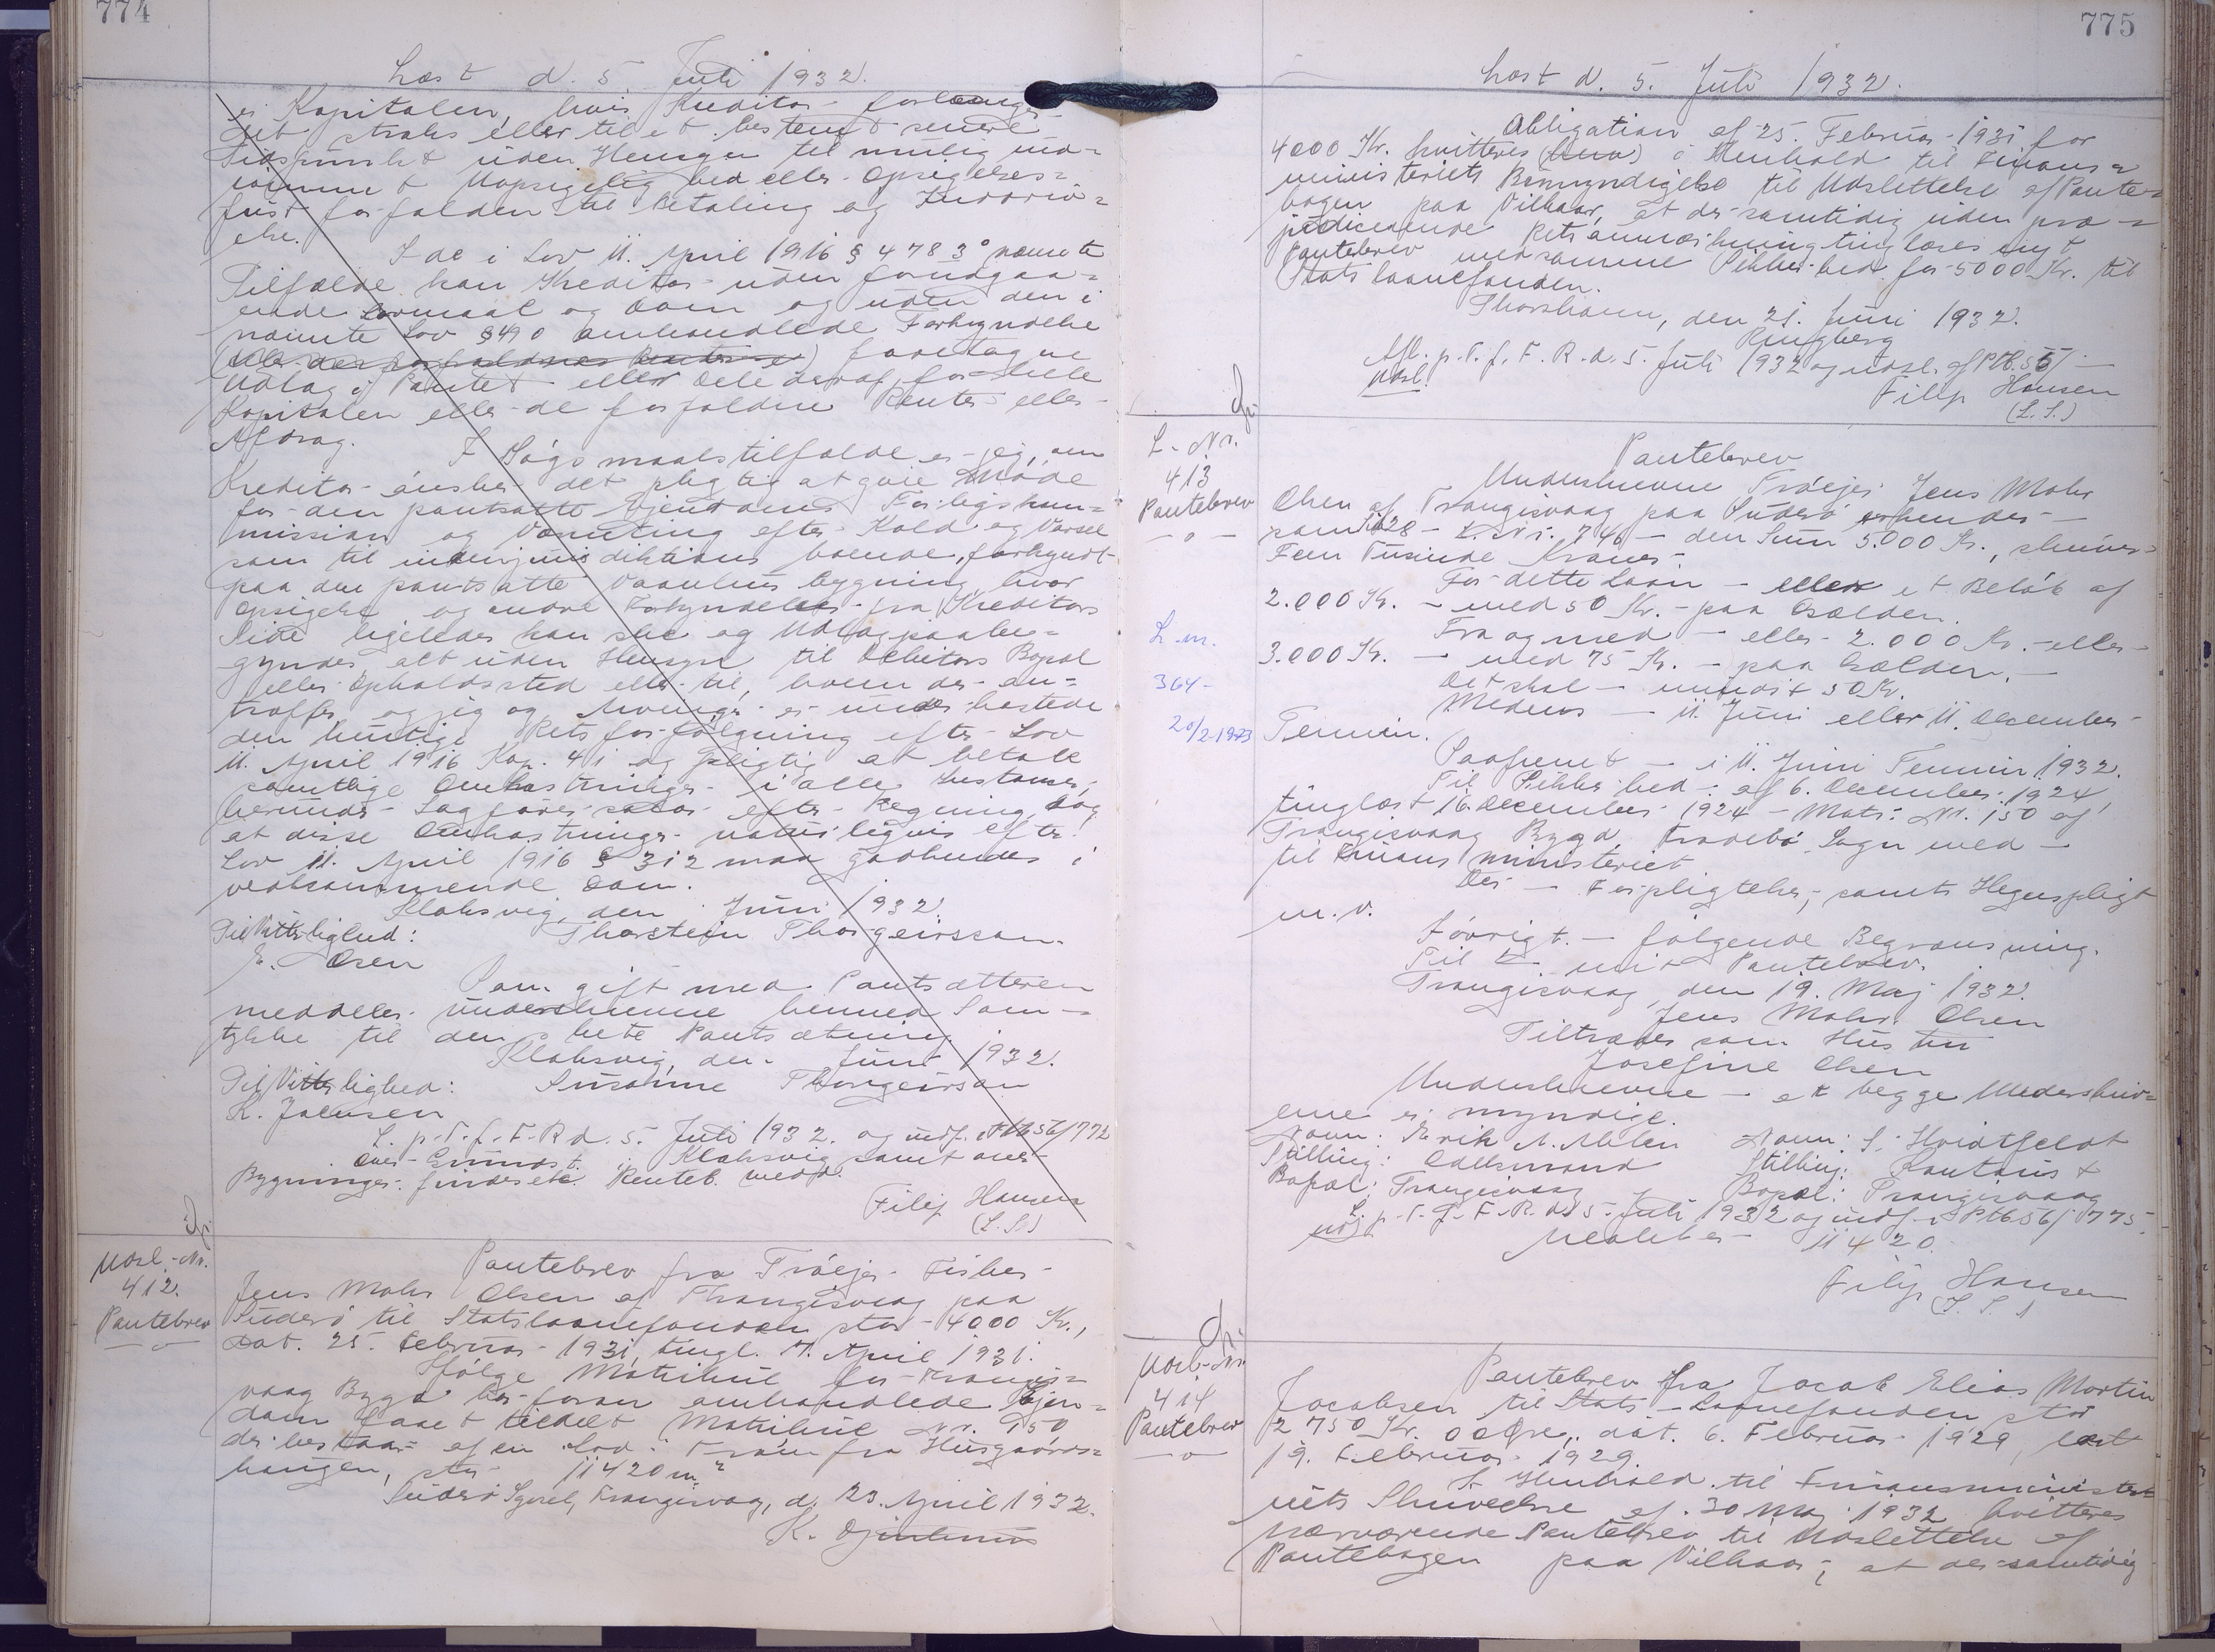 774
Læst d. 5 Juli 1932.
er Kapitalen, hvis Kreditor forlanger
det straks eller til et bestemt senere
Tidspunkt uden Hensyn til mulig ind=
rømmet Uopsigelighed eller Opsigelses=
frist forfalden til Betaling og Inddriv=
else.
I de i Lov 11. April 1916 § 478 3° nævnte
Tilfælde kan Kreditor uden forudgaa=
ende Lovmaal og Dom og uden den i
nævnte Lov § 490 omhandlede Forkyndelse
foretage
Udlag i Pantet eller Dele deraf for hele
Kapitalen eller de forfaldne Renter eller
Afdrag.
I Søgsmaalstilfælde er jeg, om
Kreditor ønsker det pligtig at give Møde
for den pantsatte Ejendoms Forligskom=
mission og Værneting efter Kald og Varsel
som til indenjurisdiktions boende, forkyndt
paa den pantsatte Vaaningsbygning, hvor
Opsigelse og andre Forkyndelser fra Kreditors
Side ligeledes kan ske og Udlag paabe=
gyndes, alt uden Hensyn til Debitors Bopæl
eller Opholdssted eller til, hvem der an=
træffes, og jeg og Arvinger er underkastede
den hurtige Retsforfølgning efter Lov
11. April 1916 Kap. 41 og pligtig at betale
samtlige Omkostninger i alle Instanser,
herunder Sagførersalær efter Regning, dog
at disse Omkostninger naturligvis efter
Lov 11. April 1916 § 312 maa godkendes i
vedkommende Dom.
Klaksvig, den Juni 1932.
Til Vitterlighed: Thorstein Thorgeirsson.
E. Olsen
Som gift med Pantsætteren
meddeler undertegnede herved Sam=
tykke til den skete Pantsætning.
Klaksvig, den Juni 1932.
Til Vitterlighed: Susanne Thorgeirson
K. Joensen
L. p. T. f. F. R d. 5. Juli 1932. og indf. i Ptb 56/772
Over Grundst. i Klaksvig samt over
Bygninger findes etc. Panteb. medd.
Filip Hansen
(L. S.)
Udsl.-Nr.
412.
Pantebrev
Pantebrev fra Træejer Fisker
Jens Mohr Olsen af Trangisvaag paa
Suderø til Statslaanefonden stor 4000 Kr.,
Dat. 25. Februar 1931, tingl. 7. April 1931.
Ifølge Matrikul for Trangis=
vaag Bygd har foran omhandlede Ejen=
dom faaet tildelt Matrikul Nr. 150,
der bestaar af en Lod i Trøen fra Husgaards=
haugen, stor 11420 m²
Suderø Syssel, Trangisvaag, d. 23. April 1932.
775
Læst d. 5. Juli 1932.
Obligation af 25. Februar 1931 for
4000 Kr. kvitteres i Henhold til Finans=
ministeriets Bemyndigelse til Udslettelse af Pante=
bogen paa Vilkaar, at der samtidig uden præ=
judicerende Retsanmærkning tinglæses nyt
Pantebrev med samme Sikkerhed for 5000 Kr. til
Statslaanefonden.
Thorshavn, den 21. Juni 1932.
Ringberg
Afl. p. T. f. F. R. d. 5. Juli 1932 og udsl. af Ptb. 55/
Udsl.
Filip Hansen
(L. S.)
L.-Nr.
413
Pantebrev
-o-
Pantebrev
Undertegnede Træejer Jens Mohr
Olsen af Trangisvaag paa Suderø erkender —
den Sum 5.000 Kr., skriver
Fem Tusinde Kroner.
For dette Laan — eller et Beløb af
2.000 Kr. — med 50 Kr. — paa Gælden.
Fra og med — eller 2.000 Kr. — eller
3.000 Kr. — med 75 Kr. — paa Gælden. —
Det skal — mindst 50 Kr.
Medens — 11. Juni eller 11. December
Termin.
Saafremt — i 11. Juni Termin 1932.
Til Sikkerhed — af 6. December 1924,
tinglæst 16. December 1924 — Matr. Nr. 150 af
Trangisvaag Bygd, Froðebø Sogn med —
til Finansministeriet
Der — Forpligtelser, samt Hegnspligt
m. v.
Iøvrigt — følgende Begrænsning.
Til — mit Pantebrev.
Trangisvaag, den 19. Maj 1932.
Jens Mohr Olsen
Tiltrædes som Hustru
Josefine Olsen
Undertegnede — at begge Underskriv=
erne er myndige.
Navn: Erik M. Mélen Navn: S. Hvidtfeldt
Stilling: Odelsmand Stilling: Kontorist
Bopæl: Trangisvaag Bopæl: Trangisvaag
L. p. T. f. F. R. d. 5. Juli 1932 og indf. i Ptb 56/775.
11420.
Filip Hansen
(L. S.)
L. nr.
364-
20/2-1973
Udsl.-Nr.
414
Pantebrev
-o-
Pantebrev fra Jacob Elias Martin
Jacobsen til Stats-Laanefonden stor
2750 Kr. 00 Øre, dat. 6. Februar 1929, læst
19. Februar 1929.
I Henhold til Finansminister=
iets Skrivelse af 30 Maj 1932 kvitteres
nærværende Pantebrev til Udslettelse af
Pantebogen paa Vilkaar, at der samtidig